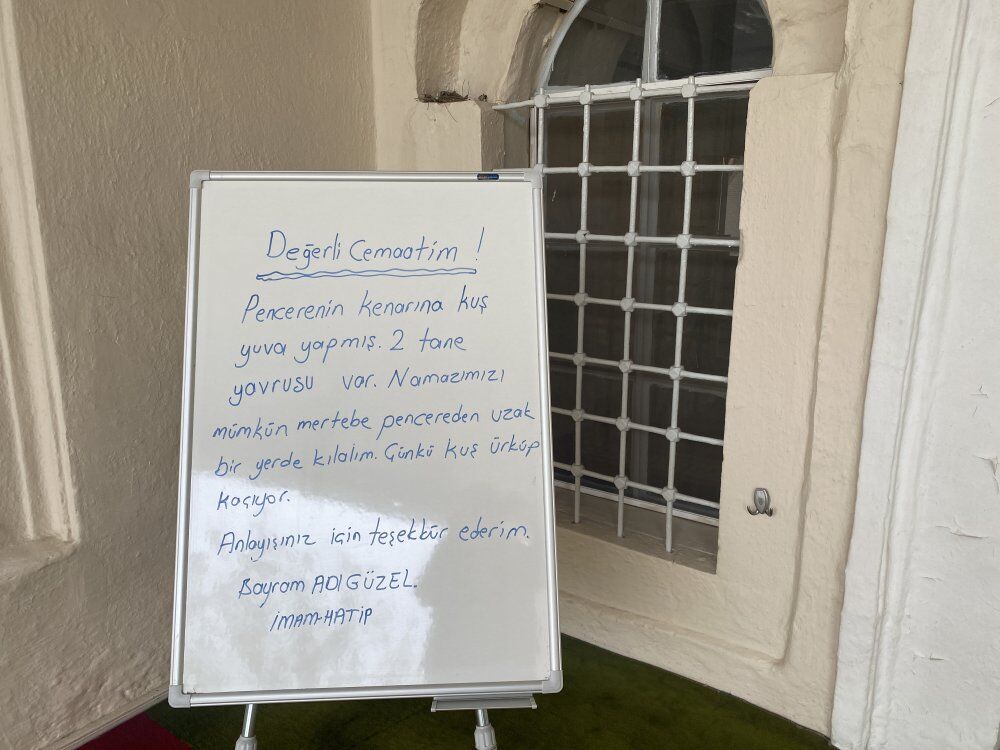 Değerli Cemaatim !
Pencerenin kenarına kuş
yuva yapmış. 2 tane
yavrusu var. Namazımızı
mümkün mertebe pencereden uzak
bir yerde kılalım. Çünkü kuş ürküp
kaçıyor.
Anlayışınız için teşekkür ederim.
Bayram ADIGÜZEL.
İMAM-HATİP